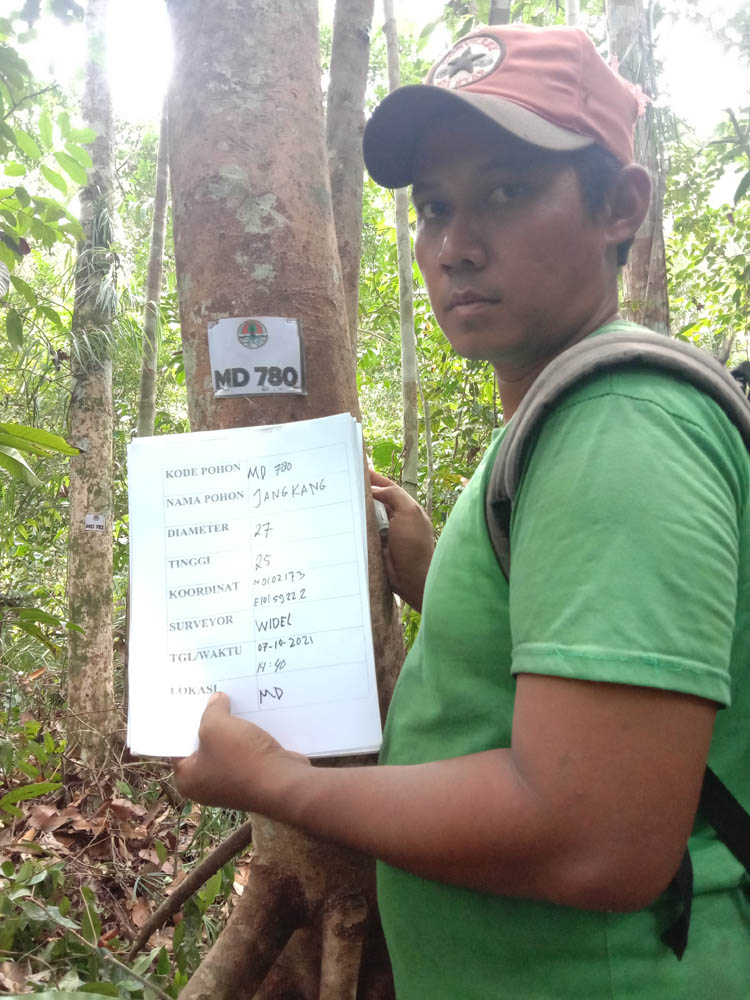 MD 780
KODE POHON MD 780
NAMA POHON JANGKANG
DIAMETER 27
TINGGI 25
KOORDINAT N0102173
E1015922.2
SURVEYOR WIDEL
TGL/WAKTU 07-10-2021
14:40
LOKASI MD